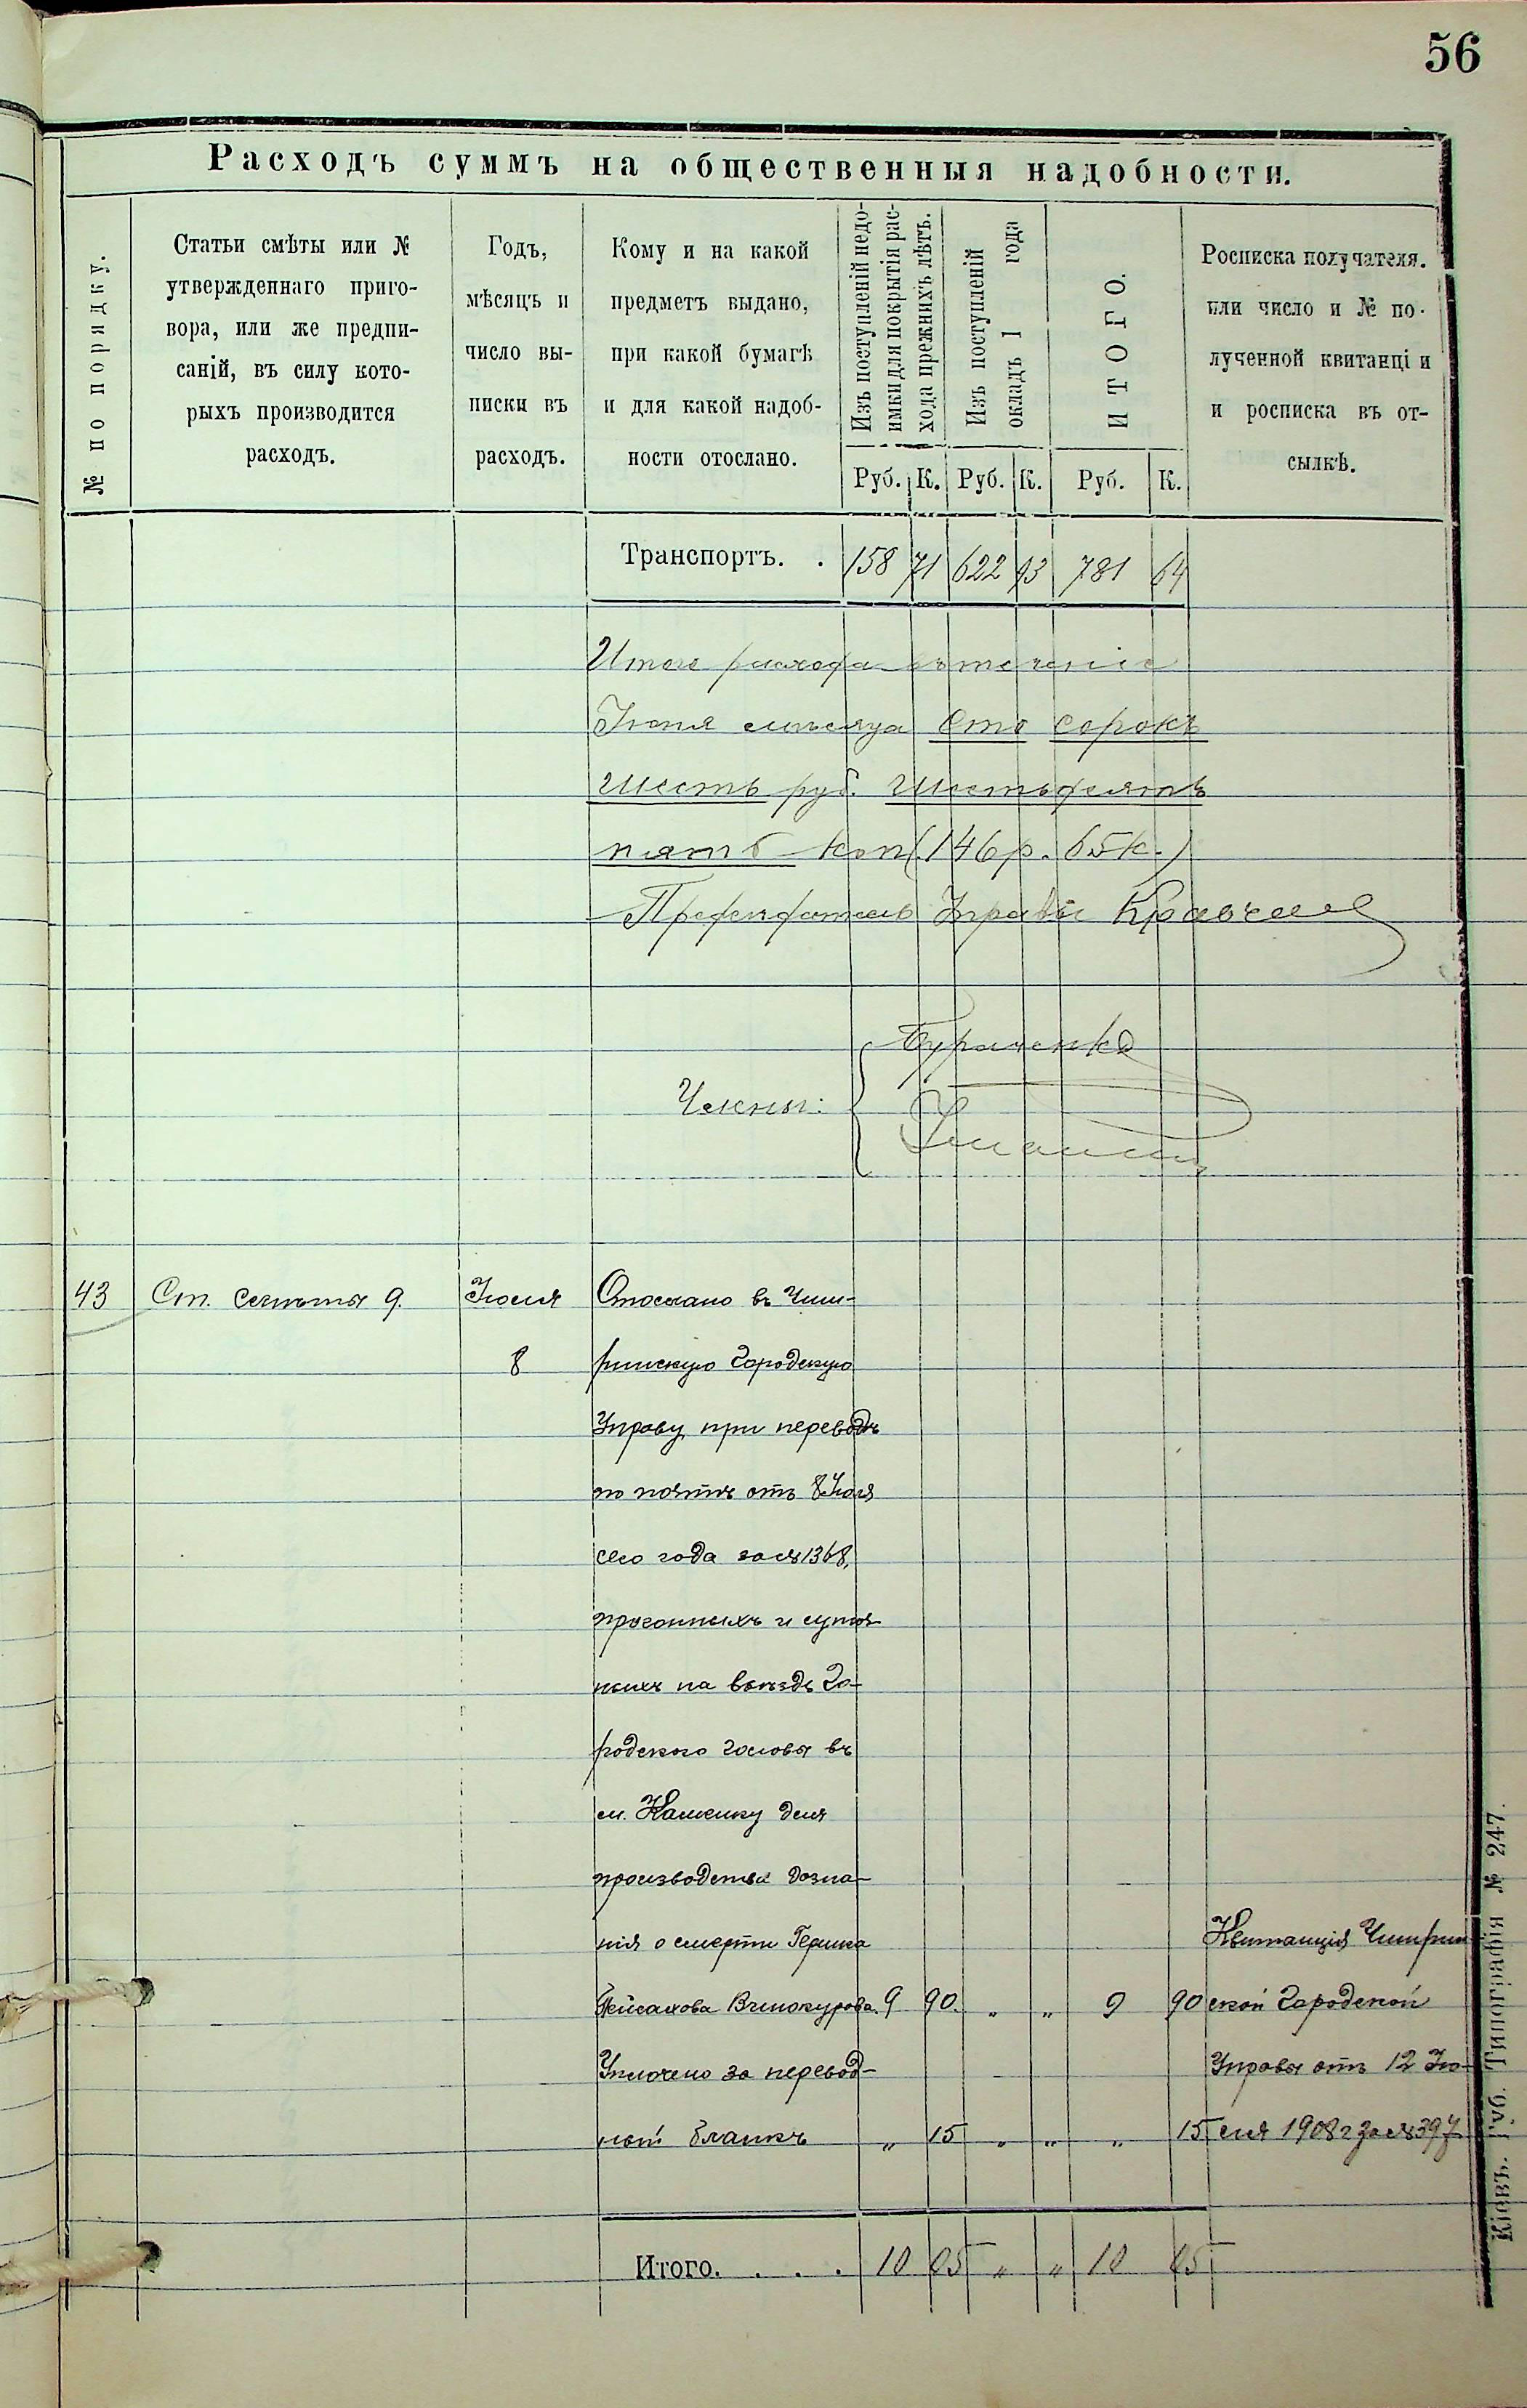 56
Расходъ суммъ на общественныя надобности.
№ по порядку.
Статьи смѣты или №
утвержденнаго приго-
вора, или же предпи-
саній, въ силу кото-
рыхъ производится
расходъ.
Годъ,
мѣсяцъ и
число вы-
писки въ
расходъ.
Кому и на какой
предметъ выдано,
при какой бумагѣ
и для какой надоб-
ности отослано.
Изъ поступленій недо-
имки для покрытія рас-
хода прежнихъ лѣтъ.
Изъ поступленій
окладъ 1 года
ИТОГО.
Росписка получателя.
или число и № по-
лученной квитанціи
и росписка въ от-
сылкѣ.
Руб. К. Руб. К. Руб. К.
Транспортъ. . 158 71 622 93 781 64
Итого расхода въ теченіе
Іюня мѣсяца Сто сорокъ
шесть руб. шестьдесятъ
пять коп. (146 р. 65 к.)
Предсѣдатель Управы
Члены:
43 Ст. смѣты 9. Іюля Отослано въ Чиги-
8 ринскую Городскую
Управу при переводѣ
по почтѣ отъ 8 Іюля
сего года за № 1368,
прогонныхъ и суточ-
ныхъ на выѣздъ Го-
родского головы въ
м. Каменку для
производства дозна-
нія о смерти Гершка
Квитанція Чигрин-
Пейсахова Винокурова. 9 90. „ „ 9 90 ской Городской
Уплочено за перевод- Управы отъ 12 Ію-
ный бланкъ „ 15 „ „ „ 15 ля 1908 г за № 397
Итого. . . . 10 05 „ „ 10 05
Кіевъ. Губ. Типографія № 247.